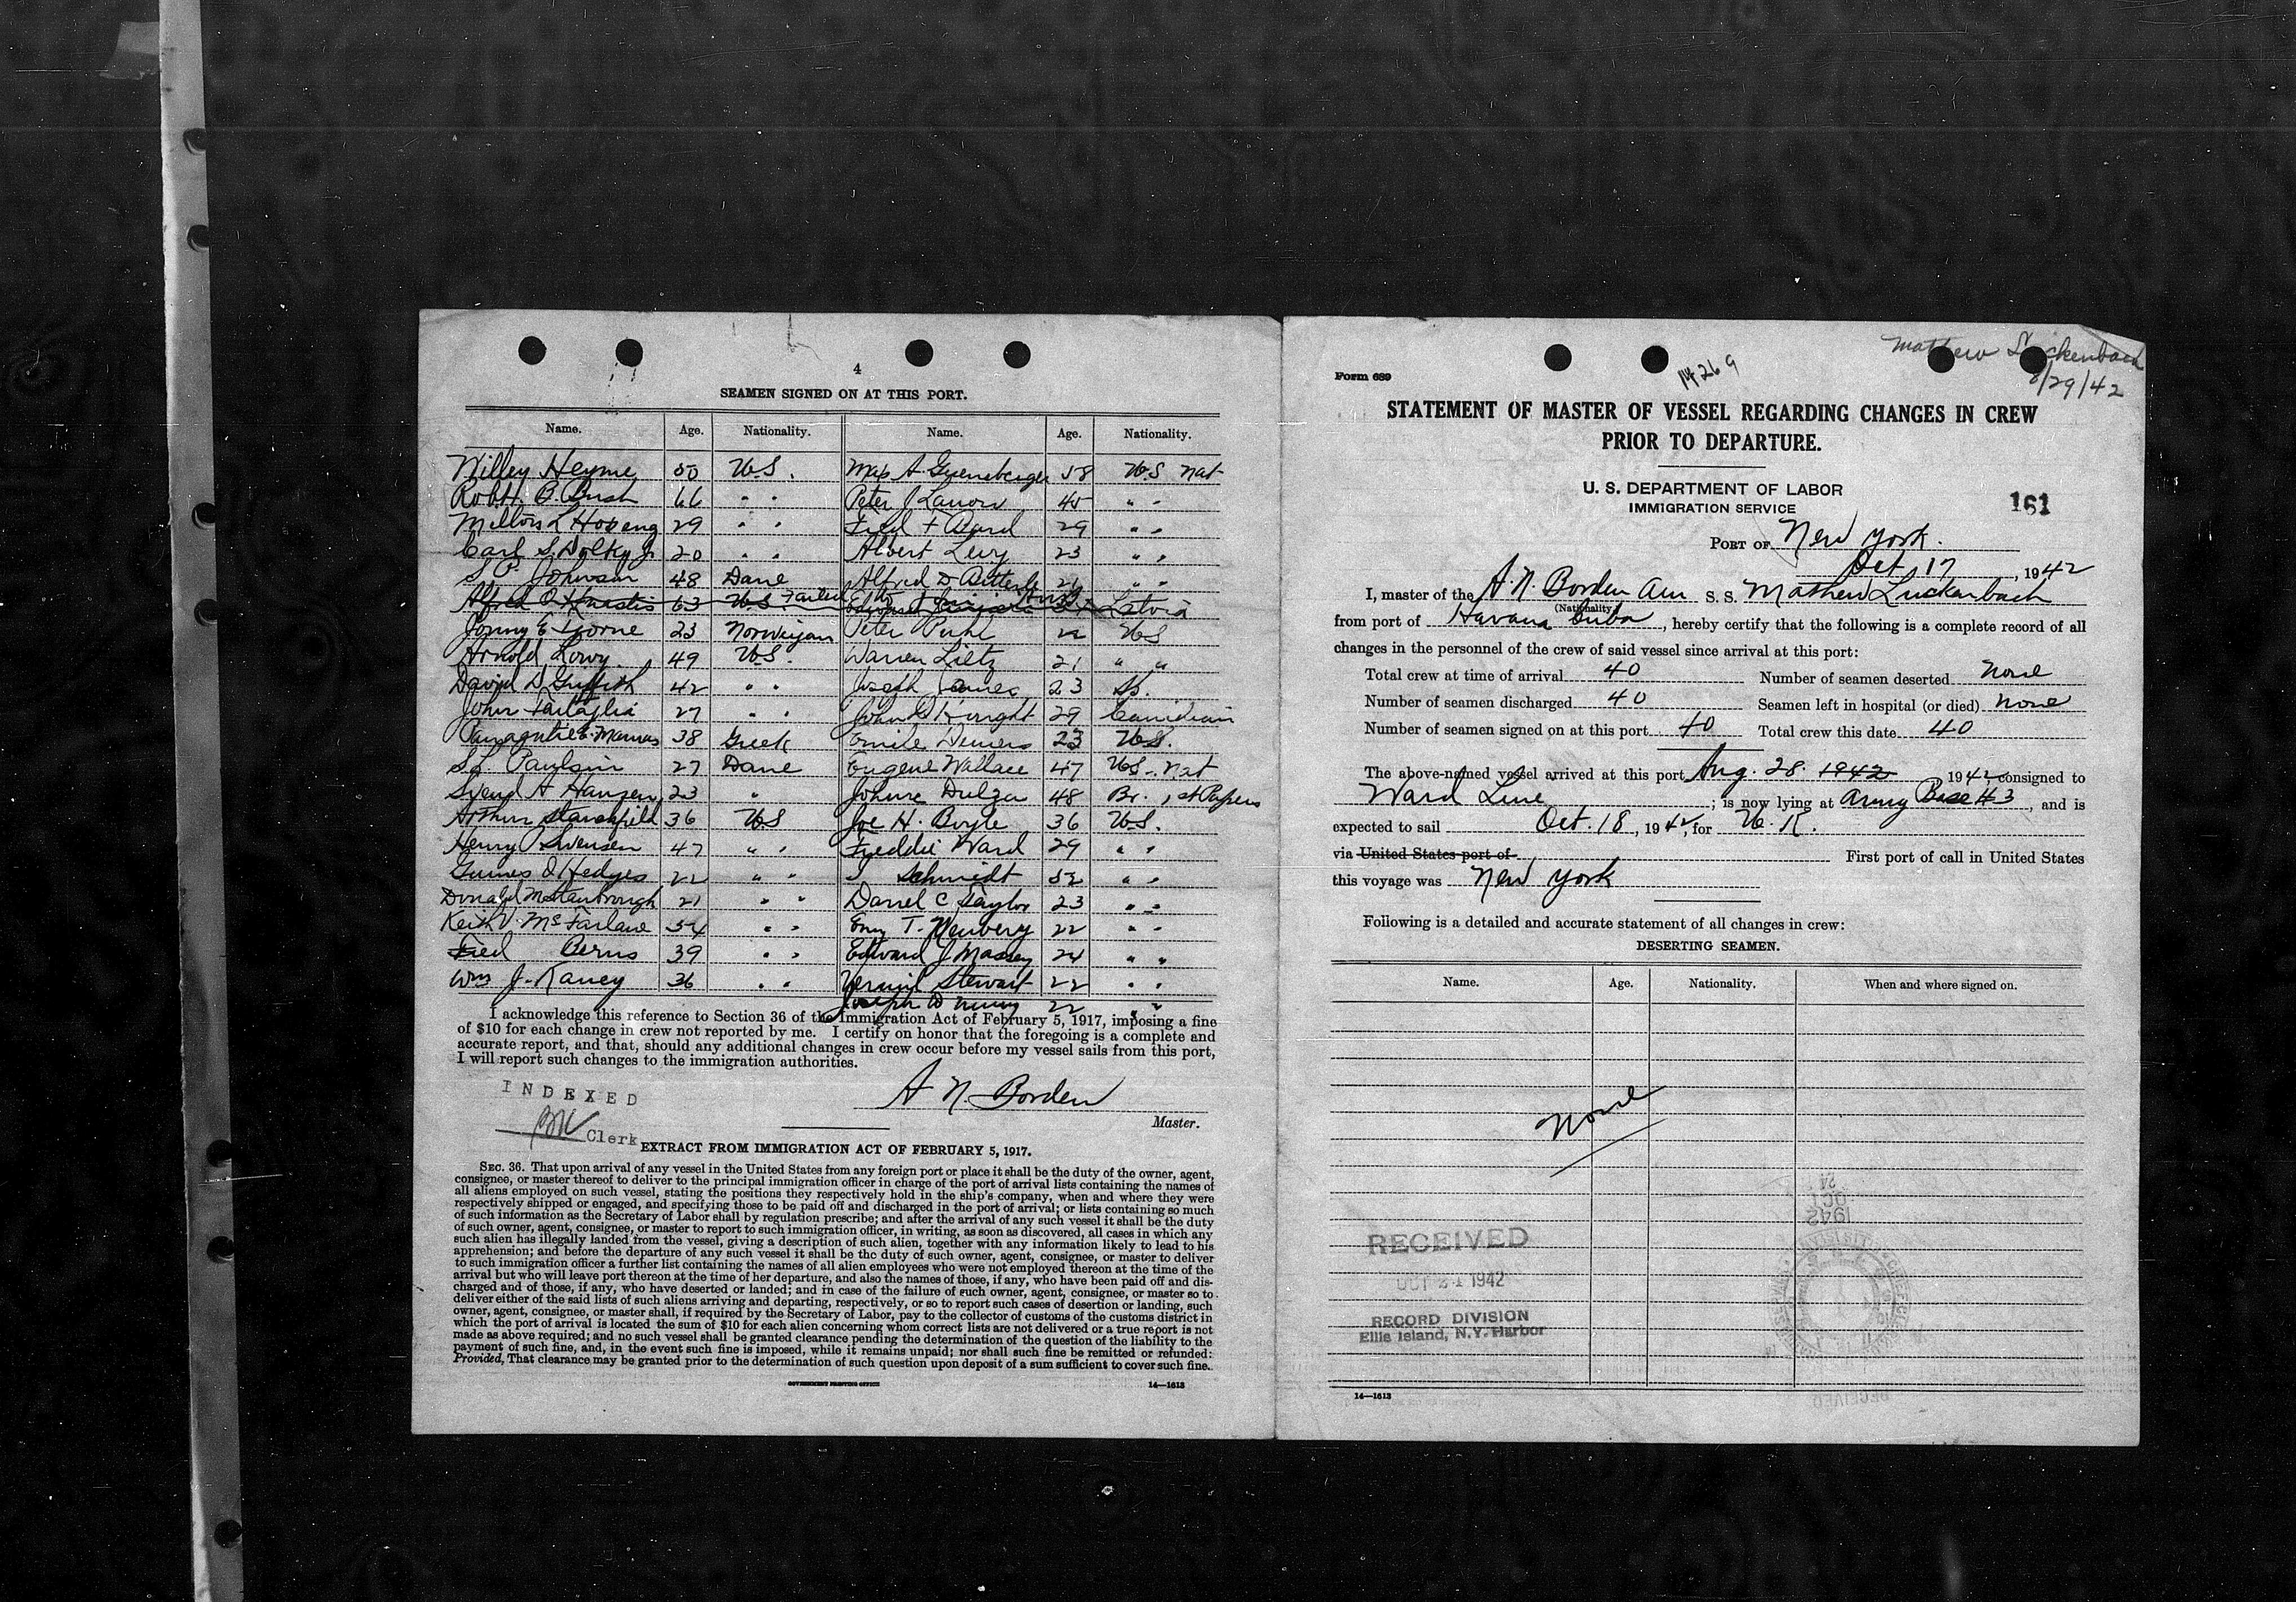 4
SEAMEN SIGNED ON AT THIS PORT.
Name. Age. Nationality. Name. Age. Nationality.
Willey Heyme 50 U.S. Max A 58 U.S Nat
Robt. B. Bush 66 " " Peter J 45 " "
Milton L 29 " " Fred F Ward 29 " "
Carl S. Jr 20 " " Albert Levy 23 " "
S. P. Johnson 48 Dane Alfred D 21 " "
Alfred O 63 U.S. Failed Latvia
E 23 Norweigan Peter Puhl 22 US
Arnold Lowy 49 U.S. Warren Lietz 21 " "
David D Griffith 42 " " Joseph 23 Sp.
John 27 " " John 29
E. Mamas 38 Greek Emile Demers 23 U.S.
S. L. Paulsin 27 Dane Eugene Wallace 47 U.S. Nat
Svend A Hansen 23 " Johnie Dulza 48 Br. 1st Papers
Arthur 36 U.S Joe H. Boyle 36 U.S.
Henry Swensen 47 " " Freddie Ward 29 " "
Hedges 22 " " Schmidt 52 " "
Donald 21 " " Darrel C Taylor 23 " "
Keith V. McFarlane 54 " " T. Newbery 22 " "
Fred Berns 39 " " Edward J Massey 24 " "
Wm J. Raney 36 " " Stewart 22 " "
Joseph 22 " "
I acknowledge this reference to Section 36 of the Immigration Act of February 5, 1917, imposing a fine
of $10 for each change in crew not reported by me. I certify on honor that the foregoing is a complete and
accurate report, and that, should any additional changes in crew occur before my vessel sails from this port,
I will report such changes to the immigration authorities.
A N. Borden
Master.
INDEXED
Clerk
EXTRACT FROM IMMIGRATION ACT OF FEBRUARY 5, 1917.
SEC. 36. That upon arrival of any vessel in the United States from any foreign port or place it shall be the duty of the owner, agent,
consignee, or master thereof to deliver to the principal immigration officer in charge of the port of arrival lists containing the names of
all aliens employed on such vessel, stating the positions they respectively hold in the ship's company, when and where they were
respectively shipped or engaged, and specifying those to be paid off and discharged in the port of arrival; or lists containing so much
of such information as the Secretary of Labor shall by regulation prescribe; and after the arrival of any such vessel it shall be the duty
of such owner, agent, consignee, or master to report to such immigration officer, in writing, as soon as discovered, all cases in which any
such alien has illegally landed from the vessel, giving a description of such alien, together with any information likely to lead to his
apprehension; and before the departure of any such vessel it shall be the duty of such owner, agent, consignee, or master to deliver
to such immigration officer a further list containing the names of all alien employees who were not employed thereon at the time of the
arrival but who will leave port thereon at the time of her departure, and also the names of those, if any, who have been paid off and dis-
charged and of those, if any, who have deserted or landed; and in case of the failure of such owner, agent, consignee, or master so to
deliver either of the said lists of such aliens arriving and departing, respectively, or so to report such cases of desertion or landing, such
owner, agent, consignee, or master shall, if required by the Secretary of Labor, pay to the collector of customs of the customs district in
which the port of arrival is located the sum of $10 for each alien concerning whom correct lists are not delivered or a true report is not
made as above required; and no such vessel shall be granted clearance pending the determination of the question of the liability to the
payment of such fine, and, in the event such fine is imposed, while it remains unpaid; nor shall such fine be remitted or refunded:
Provided, That clearance may be granted prior to the determination of such question upon deposit of a sum sufficient to cover such fine.
GOVERNMENT PRINTING OFFICE 14—1613
Mathew Luckenbach
8/29/42
14269
Form 689
STATEMENT OF MASTER OF VESSEL REGARDING CHANGES IN CREW
PRIOR TO DEPARTURE.
U. S. DEPARTMENT OF LABOR
IMMIGRATION SERVICE
161
PORT OF New York.
Oct 17, 1942
I, master of the A. N. Borden Am S. S. Mathew Luckenbach
(Nationality)
from port of Havana Cuba, hereby certify that the following is a complete record of all
changes in the personnel of the crew of said vessel since arrival at this port:
Total crew at time of arrival 40 Number of seamen deserted None
Number of seamen discharged 40 Seamen left in hospital (or died) None
Number of seamen signed on at this port 40 Total crew this date 40
The above-named vessel arrived at this port Aug. 28. 1942, 1942 consigned to
Ward Line; is now lying at Army Base #3, and is
expected to sail Oct. 18, 1942, for U. K.
via United States port of First port of call in United States
this voyage was New York
Following is a detailed and accurate statement of all changes in crew:
DESERTING SEAMEN.
Name. Age. Nationality. When and where signed on.
None
RECEIVED
OCT 21 1942
RECORD DIVISION
Ellis Island, N.Y. Harbor
14—1613